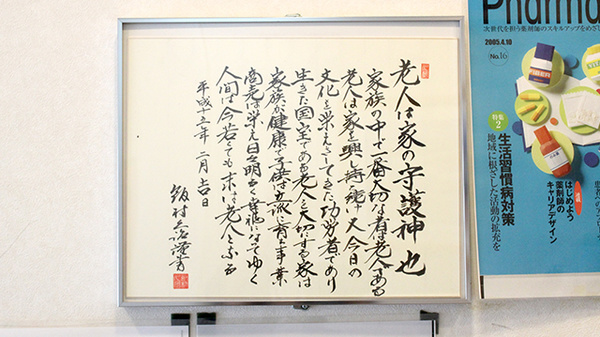 老人は家の守護神也
家族の中で一番大切な者は老人である
老人は家を興し守り 又今日の
文化を栄えさしてきた功労者であり
生きた国宝である老人を大切にする家は
家族が健康で子供は立派に育ち事業
商売は栄え日々明るく幸福になってゆく
人間は今若くても末には老人となる
平成十五年 一月吉日
飯村
Pharma
次世代を担う薬剤師のスキルアップをめざし
2005.4.10
No.16
特集2
生活習慣病対策
地域に根ざした活動の拡充を
はじめよう
薬剤師の
キャリアデザイン